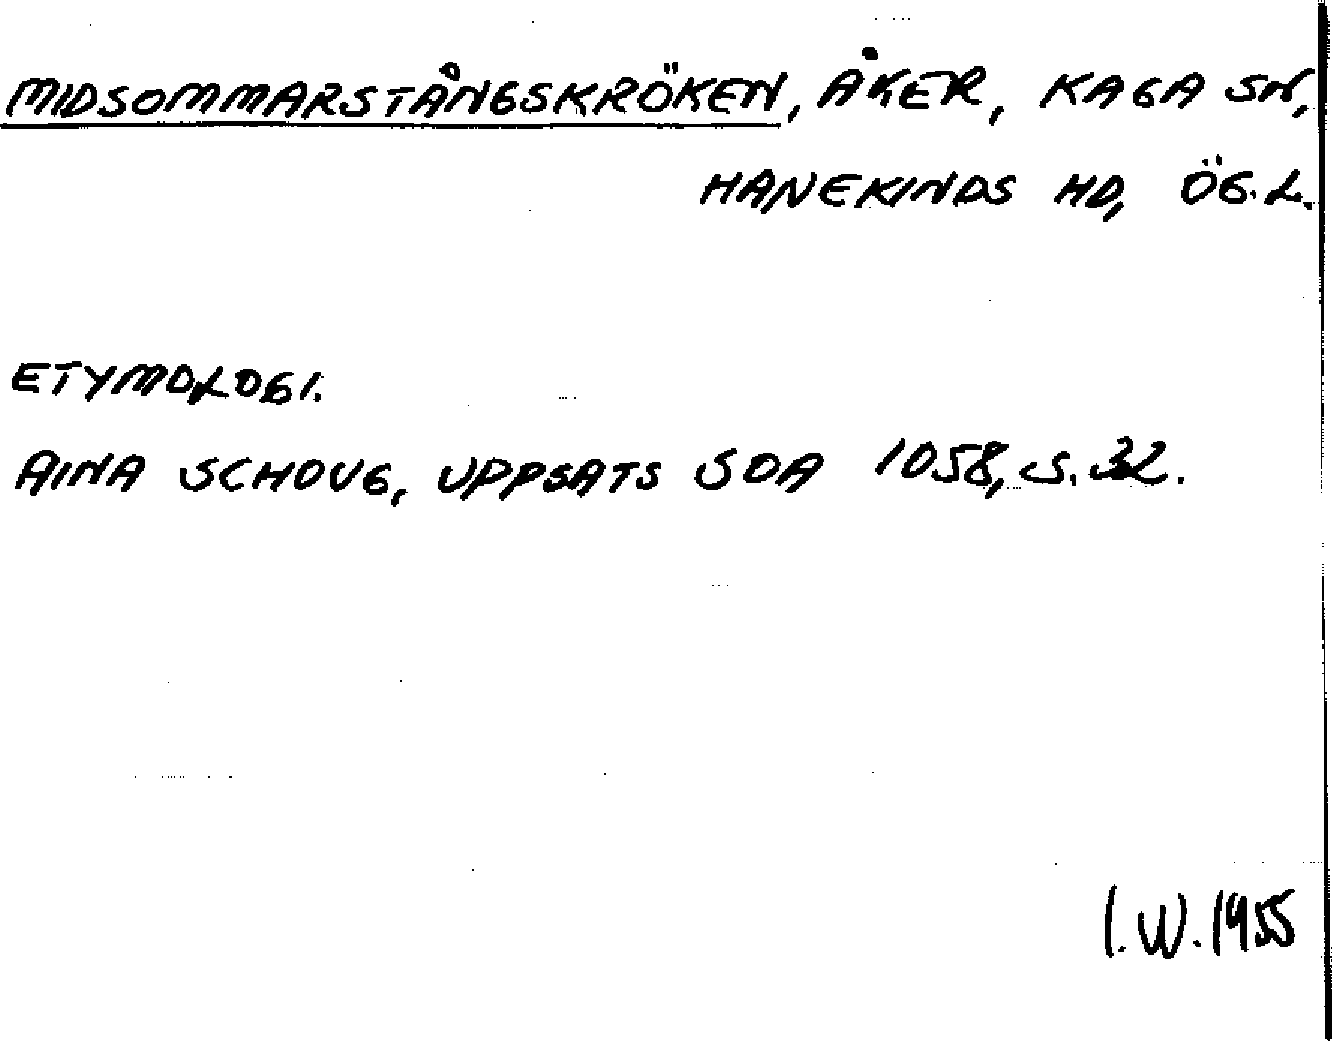 MIDSOMMARSTÅNGSKRÖKEN, ÅKER, KAGA SN,
HANEKINDS HD, ÖG.L.
ETYMOLOGI.
AINA SCHOUG, UPPSATS SOA 1058, S. 32.
I.W. 1955